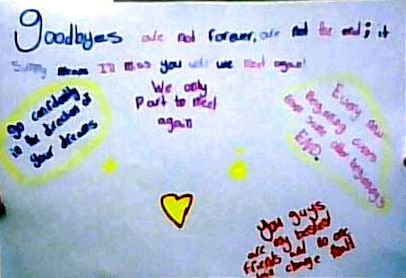 Goodbyes are not forever, are not the end; it
Simply mean I'll miss you until we meet again!
We only
Part to meet
again
go confidently
in the direction of
your dreams
Every new
Beginning comes
from some other beginning's
END.
You guys
are my bestest
friends and no one
can change that!